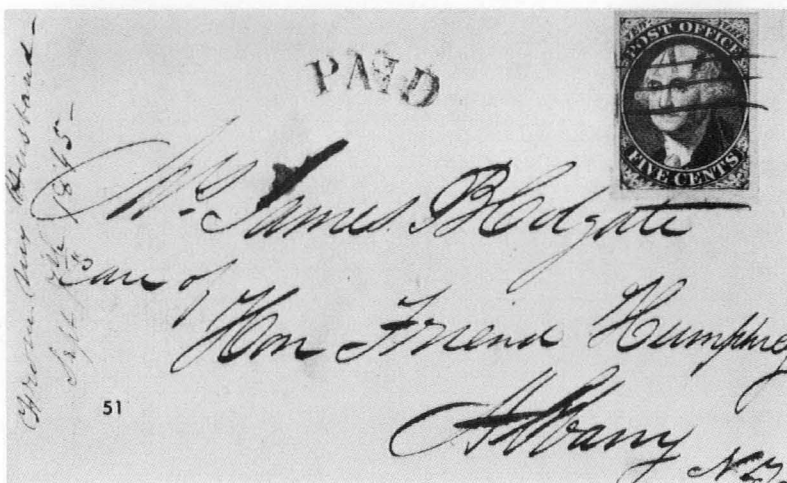 From my Husband—
Sept 1845—
PAID
POST OFFICE
FIVE CENTS
Mrs James B Colgate
care of
Hon Friend Humphrey
Albany
N.Y.
51